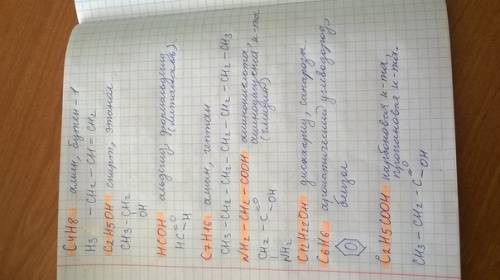 C4H8 алкен, бутен-1
H3 – CH2 – CH = CH2
C2H5OH спирт, этанол
CH3–CH2
OH
HCOH альдегид, формальдегид
(метаналь)
HC=O
H
C7H16 алкан, гептан
CH3–CH2–CH2–CH2–CH2–CH2–CH3
NH2–CH2–COOH аминокислота,
аминоуксусная к-та
CH2–C=O (глицин)
OH
NH2
C12H22O11 дисахарид, сахароза
C6H6 ароматический углеводород,
бензол
C2H5COOH карбоновая к-та,
пропановая к-та.
CH3–CH2–C=O
OH